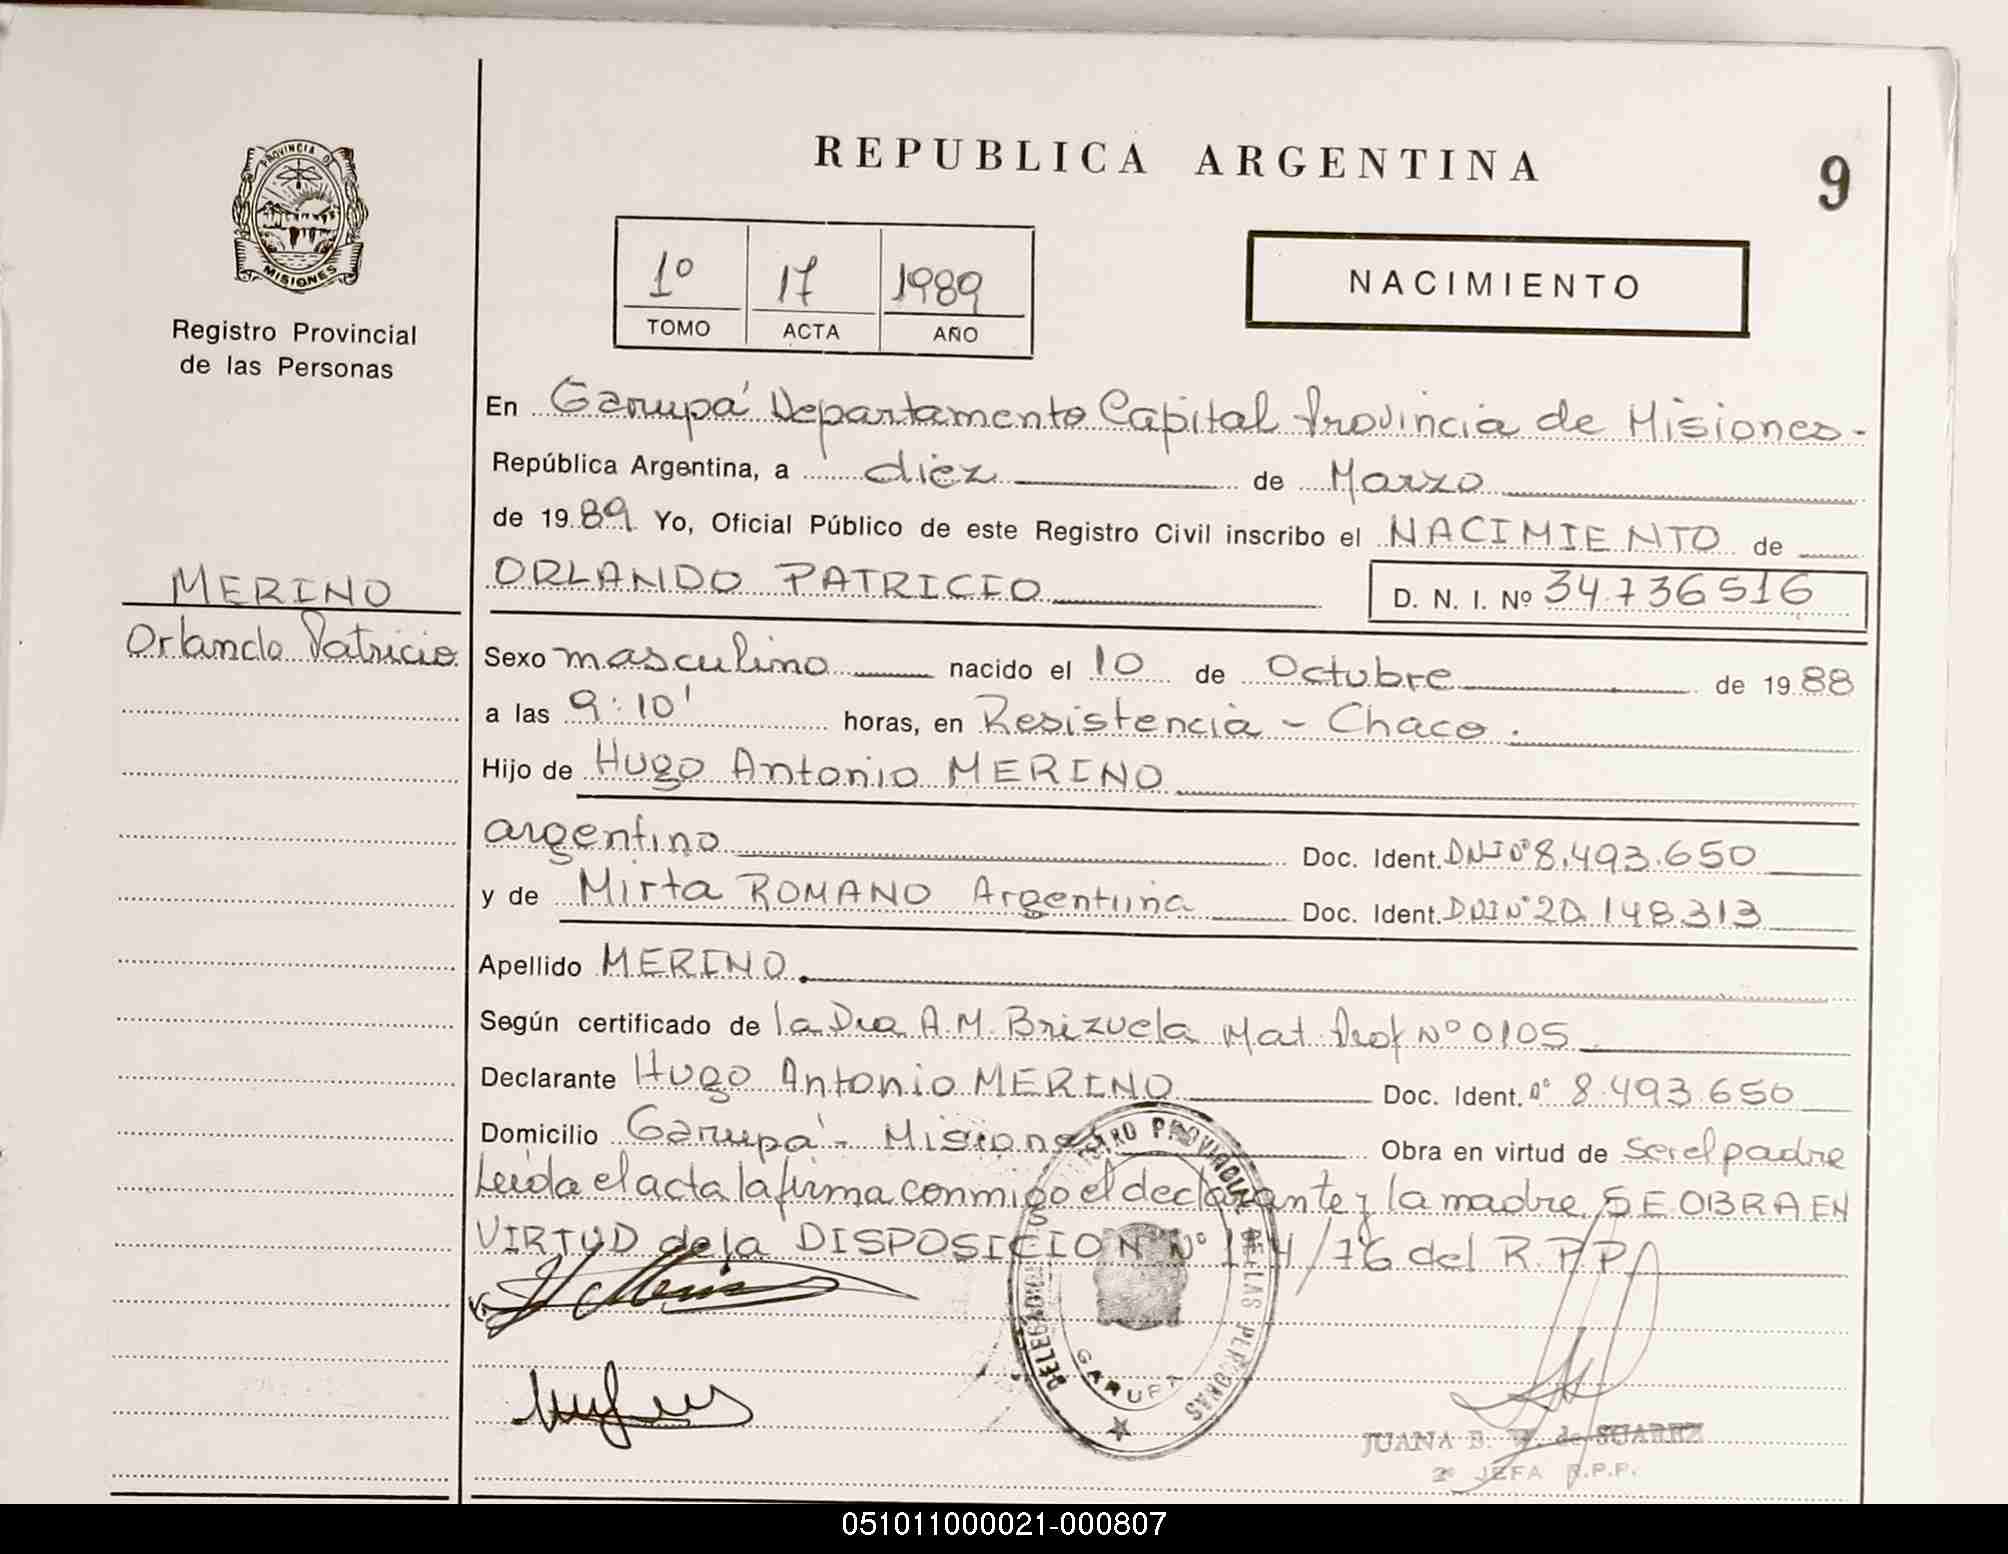 REPUBLICA ARGENTINA
9
PROVINCIA DE
MISIONES
Registro Provincial
de las Personas
1º 17 1989
TOMO ACTA AÑO
NACIMIENTO
En Garupá Departamento Capital Provincia de Misiones -
República Argentina, a diez de Marzo
de 1989 Yo, Oficial Público de este Registro Civil inscribo el NACIMIENTO de
MERINO
ORLANDO PATRICIO D. N. I. Nº 34.736516
Orlando Patricio
Sexo masculino nacido el 10 de Octubre de 1988
a las 9:10' horas, en Resistencia - Chaco.
Hijo de Hugo Antonio MERINO
argentino Doc. Ident. DNI Nº 8.493.650
y de Mirta ROMANO Argentina Doc. Ident. DNI Nº 20.148.313
Apellido MERINO.
Según certificado de la Dra A.M. Brizuela Mat. Prof Nº 0105
Declarante Hugo Antonio MERINO Doc. Ident. Nº 8.493.650
Domicilio Garupá - Misiones Obra en virtud de ser el padre
Leída el acta la firma conmigo el declarante y la madre. SE OBRA EN
VIRTUD de la DISPOSICION Nº 114/76 del R.P.P.
PROVINCIAL DE LAS PERSONAS
GARUPA
JUANA B. de SUAREZ
2º JEFA R.P.P.
051011000021-000807